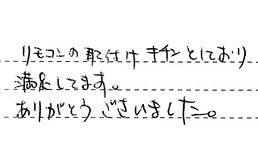 リモコンの取付けキチンとしており
満足してます。
ありがとうございました。